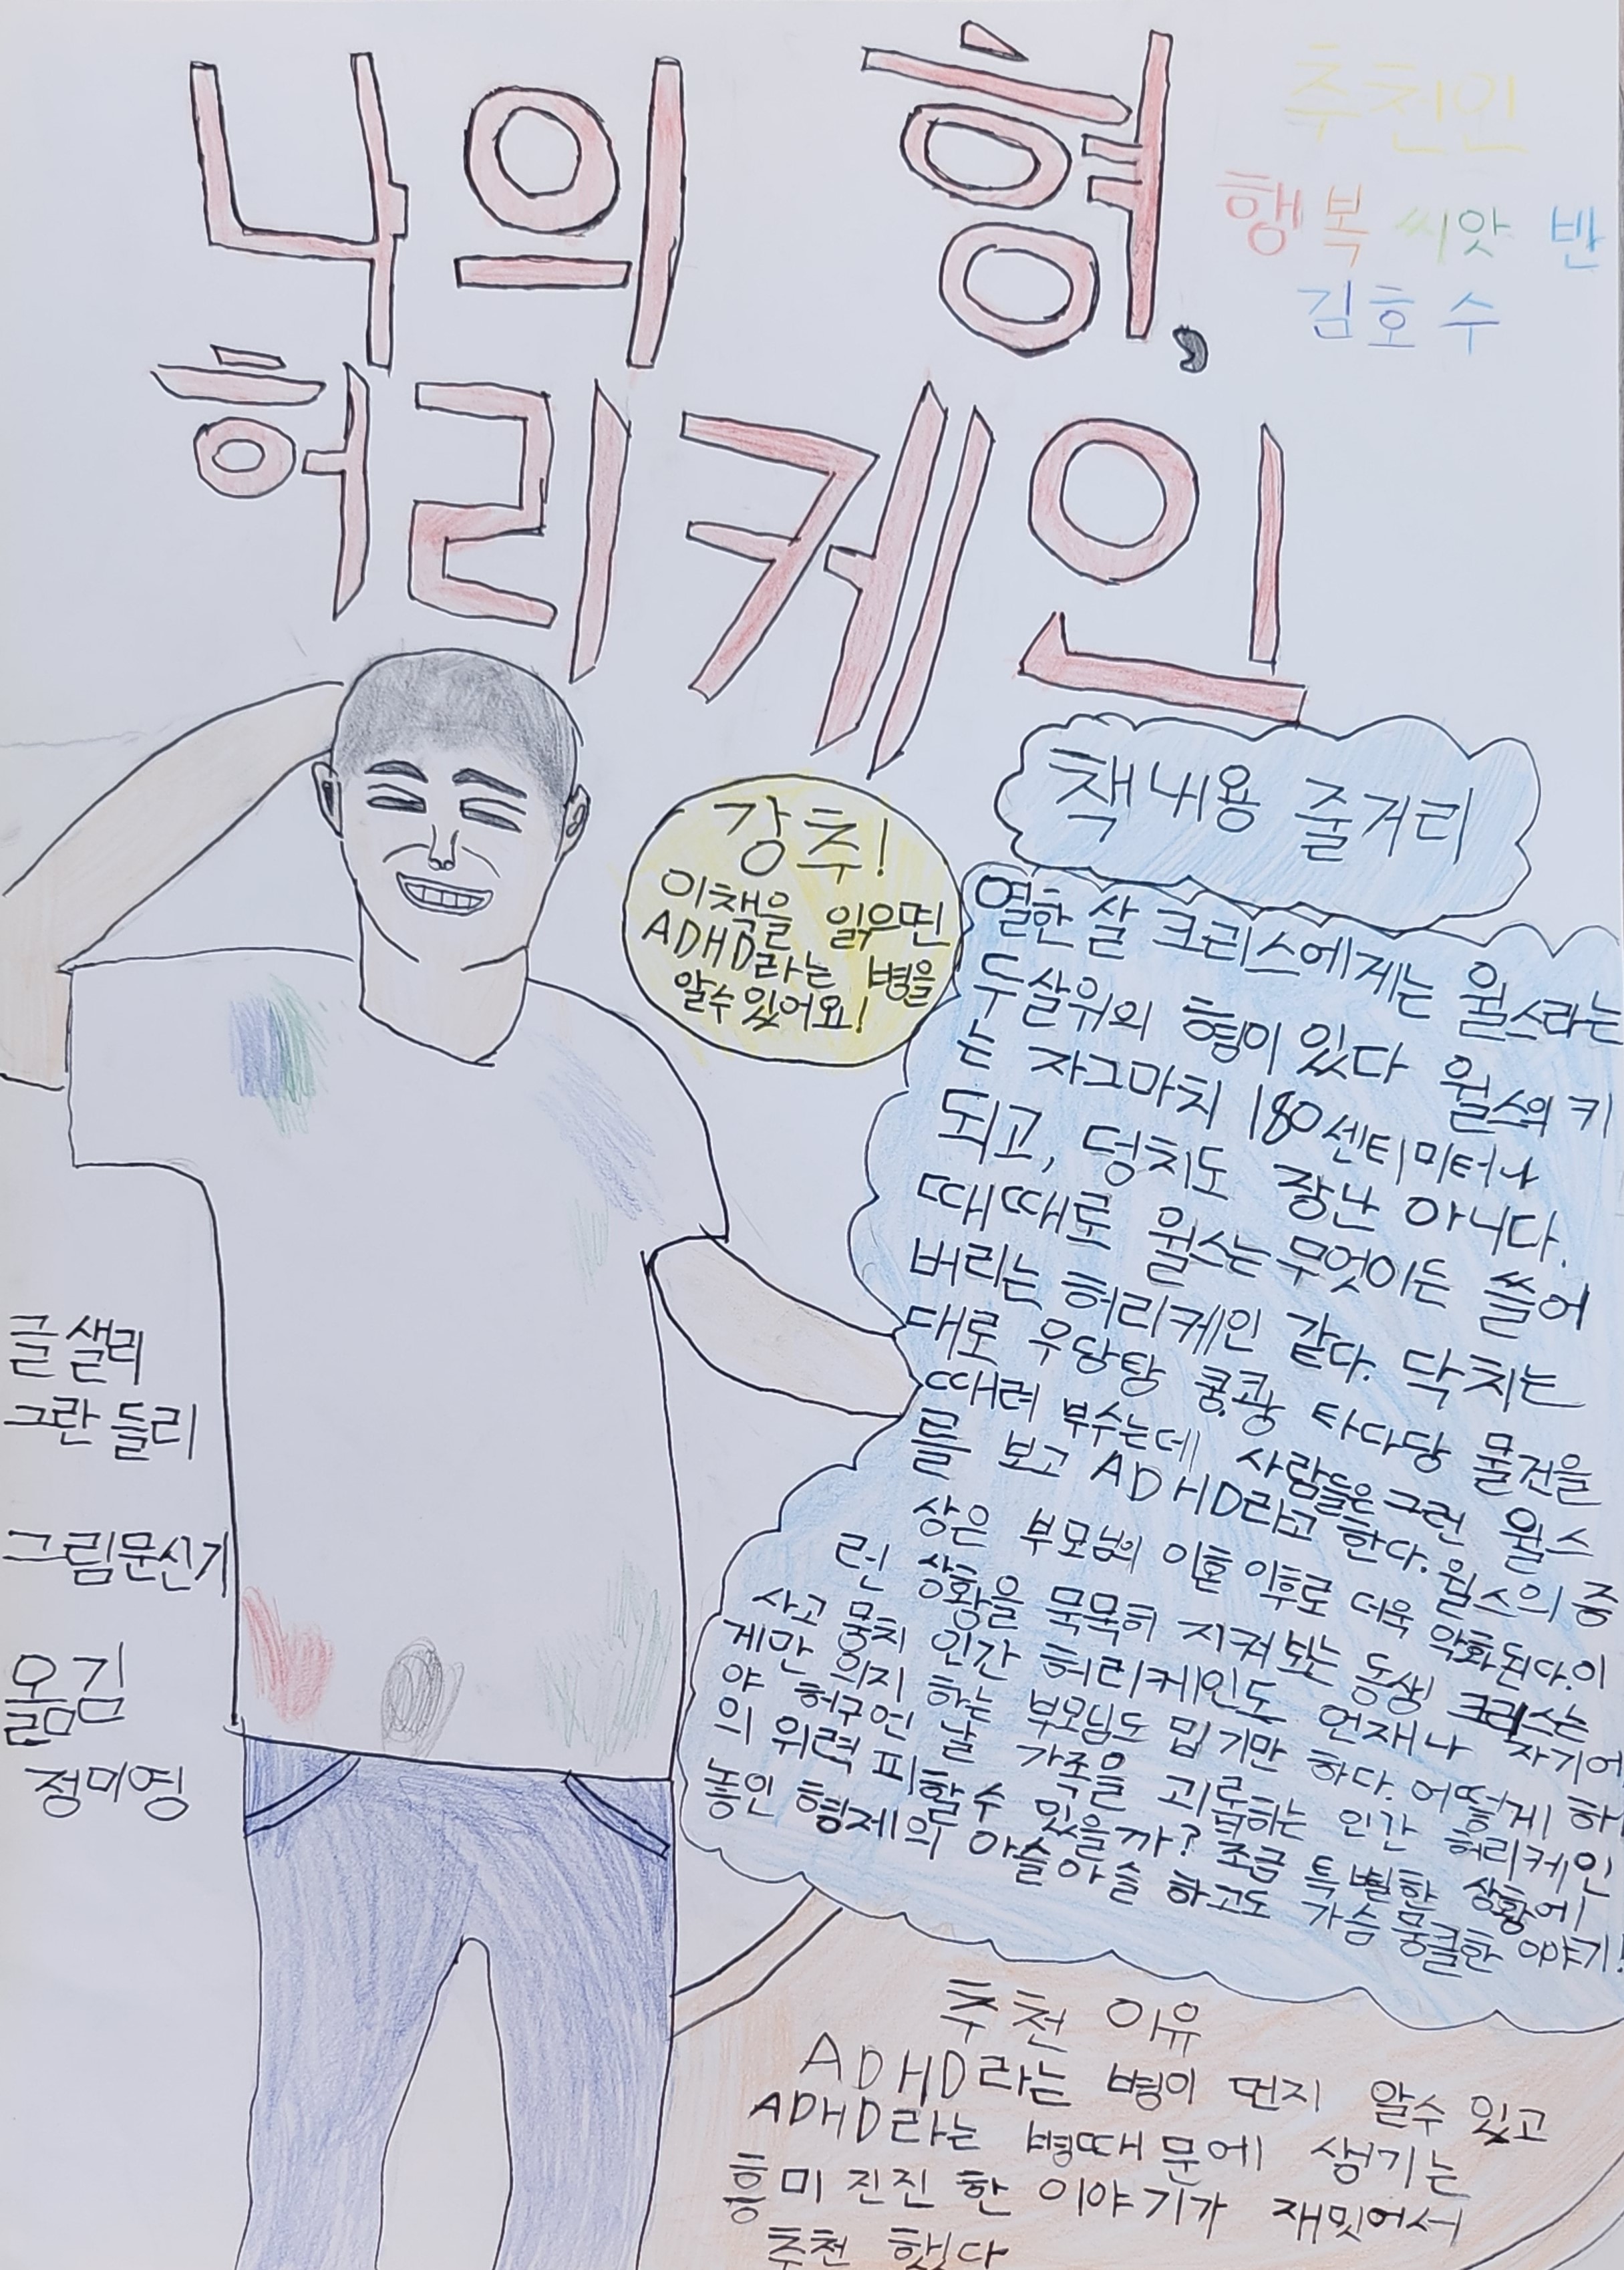 나의 형,
허리케인
추천인
행복 씨앗 반
김호수
강추!
이책을 읽으면
ADHD라는 병을
알수 있어요!
책 내용 줄거리
열한 살 크리스에게는 월스라는
두살위의 형이 있다 월스의 키
는 자그마치 180센티미터나
되고, 덩치도 장난 아니다.
때때로 월스는 무엇이든 쓸어
버리는 허리케인 같다. 닥치는
대로 우당탕 쿵쾅 타다당 물건을
때려 부수는데 사람들은 그런 월스
를 보고 ADHD라고 한다. 월스의 증
상은 부모님의 이혼 이후로 더욱 악화된다. 이
런 상황을 묵묵히 지켜 보는 동생 크리스는
사고 뭉치 인간 허리케인도 언재나 자기에
게만 의지 하는 부모님도 밉기만 하다. 어떻게 하
야 허구언 날 가족을 괴롭히는 인간 허리케인
의 위력 피할수 있을까? 조금 특별한 상황에
놓인 형제의 아슬아슬 하고도 가슴 뭉클한 이야기!
글 샐리
그란 들리
그림 문신기
옮김
정미영
추천 이유
ADHD라는 병이 먼지 알수 있고
ADHD라는 병때문에 생기는
흥미 진진 한 이야기가 재밌어서
추천 했다